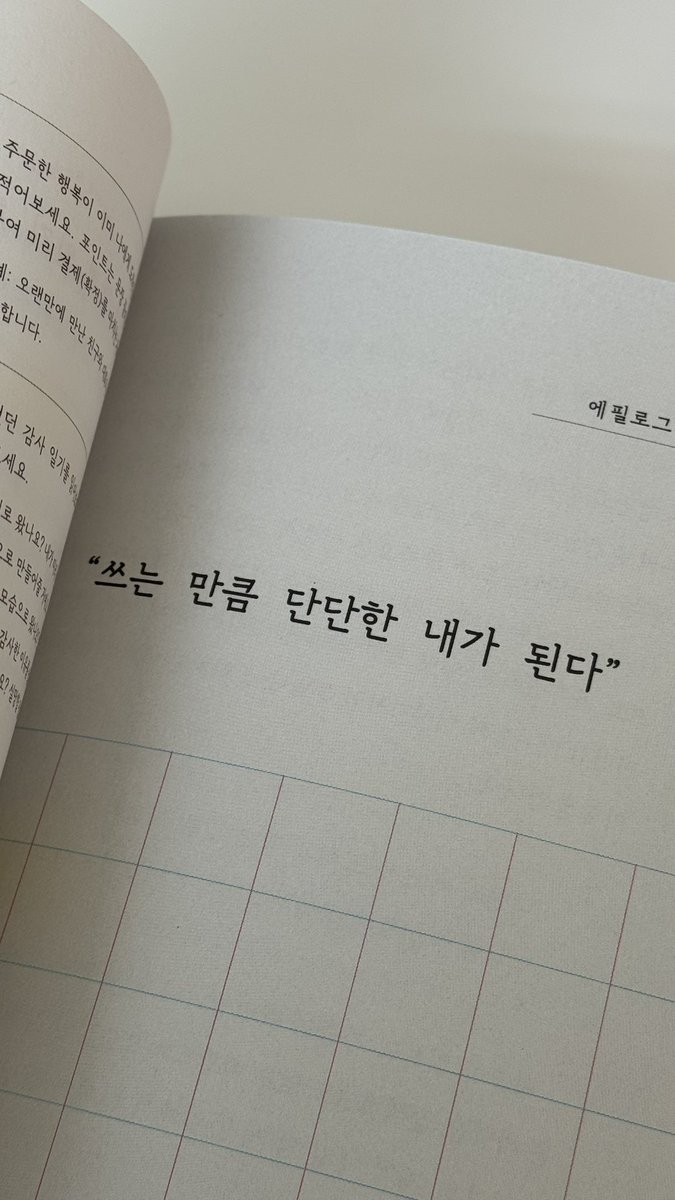 주문한 행복이 이미 나에게
적어보세요. 포인트는 문장
하여 미리 결제(확정)를
예: 오랜만에 만난 친구와
합니다.
감사 일기를
세요.
로 왔나요? 내가
으로 만들어줄
모습으로
감사한
에필로그
“쓰는 만큼 단단한 내가 된다”